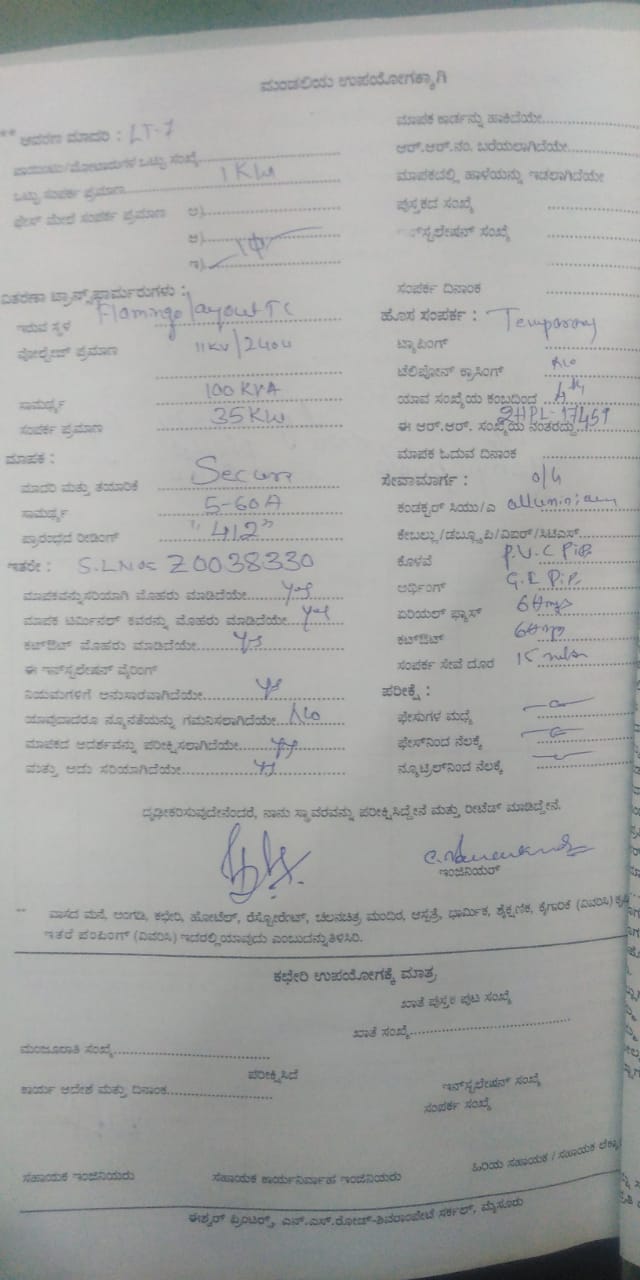 ಮಂಡಲಿಯ ಉಪಯೋಗಕ್ಕಾಗಿ
** ಆವರಣ ಮಾದರಿ : LT-7
ಪಾಯಿಂಟು/ಮೋಟಾರುಗಳ ಒಟ್ಟು ಸಂಖ್ಯೆ
ಒಟ್ಟು ಸಂಪರ್ಕ ಪ್ರಮಾಣ 1KW
ಫೇಸ್ ಮೇಲೆ ಸಂಪರ್ಕ ಪ್ರಮಾಣ ಅ)
ಆ) 1Φ
ಇ)
ವಿತರಣಾ ಟ್ರಾನ್ಸ್‌ಫಾರ್ಮರುಗಳು :
ಇರುವ ಸ್ಥಳ Flamingo layout TC
ವೋಲ್ಟೇಜ್ ಪ್ರಮಾಣ 11KV/
ಸಾಮರ್ಥ್ಯ 100 KVA
ಸಂಪರ್ಕ ಪ್ರಮಾಣ 35KW
ಮಾಪಕ :
ಮಾದರಿ ಮತ್ತು ತಯಾರಿಕೆ
ಸಾಮರ್ಥ್ಯ 5-60A
ಪ್ರಾರಂಭದ ರೀಡಿಂಗ್ "412"
ಇತರೇ : S.L.No: Z0038330
ಮಾಪಕವನ್ನು ಸರಿಯಾಗಿ ಮೊಹರು ಮಾಡಿದೆಯೇ Yes
ಮಾಪಕ ಟರ್ಮಿನಲ್ ಕವರನ್ನು ಮೊಹರು ಮಾಡಿದೆಯೇ Yes
ಕಟ್‌ಔಟ್ ಮೊಹರು ಮಾಡಿದೆಯೇ Yes
ಈ ಇನ್‌ಸ್ಟಲೇಷನ್ ವೈರಿಂಗ್
ನಿಯಮಗಳಿಗೆ ಅನುಸಾರವಾಗಿದೆಯೇ Yes
ಯಾವುದಾದರೂ ನ್ಯೂನತೆಯನ್ನು ಗಮನಿಸಲಾಗಿದೆಯೇ No
ಮಾಪಕದ ಆದರ್ಶವನ್ನು ಪರೀಕ್ಷಿಸಲಾಗಿದೆಯೇ Yes
ಮತ್ತು ಅದು ಸರಿಯಾಗಿದೆಯೇ Yes
ಮಾಪಕ ಕಾರ್ಡನ್ನು ಹಾಕಿದೆಯೇ
ಆರ್.ಆರ್.ನಂ. ಬರೆಯಲಾಗಿದೆಯೇ
ಮಾಪಕದಲ್ಲಿ ಹಾಳೆಯನ್ನು ಇಡಲಾಗಿದೆಯೇ
ಪುಸ್ತಕದ ಸಂಖ್ಯೆ
ಇನ್‌ಸ್ಟಲೇಷನ್ ಸಂಖ್ಯೆ
ಸಂಪರ್ಕ ದಿನಾಂಕ
ಹೊಸ ಸಂಪರ್ಕ : Temporary
ಟ್ಯಾಪಿಂಗ್
ಟೆಲಿಫೋನ್ ಕ್ರಾಸಿಂಗ್ No
ಯಾವ ಸಂಖ್ಯೆಯ ಕಂಬದಿಂದ
ಈ ಆರ್.ಆರ್. ಸಂಖ್ಯೆಯ ನಂತರದ್ದು
ಮಾಪಕ ಓದುವ ದಿನಾಂಕ
ಸೇವಾಮಾರ್ಗ : O/H
ಕಂಡಕ್ಟರ್ ಸಿಯು/ಎ
ಕೇಬಲ್ಲು/ಡಬ್ಲ್ಯೂಪಿ/ವಿಐಆರ್/ಸಿಟಿಎಸ್
ಕೊಳವೆ P.V.C Pipe
ಅರ್ಥಿಂಗ್ G.I. Pipe
ಏರಿಯಲ್ ಫ್ಯೂಸ್
ಕಟ್‌ಔಟ್
ಸಂಪರ್ಕ ಸೇವೆ ದೂರ 15
ಪರೀಕ್ಷೆ :
ಫೇಸುಗಳ ಮಧ್ಯೆ
ಫೇಸ್‌ನಿಂದ ನೆಲಕ್ಕೆ
ನ್ಯೂಟ್ರಲ್‌ನಿಂದ ನೆಲಕ್ಕೆ
ದೃಢೀಕರಿಸುವುದೇನೆಂದರೆ, ನಾನು ಸ್ಥಾವರವನ್ನು ಪರೀಕ್ಷಿಸಿದ್ದೇನೆ ಮತ್ತು ರೀಟೆಡ್ ಮಾಡಿದ್ದೇನೆ.
ಇಂಜಿನಿಯರ್
** ವಾಸದ ಮನೆ, ಅಂಗಡಿ, ಕಛೇರಿ, ಹೋಟೆಲ್, ರೆಸ್ಟೋರೆಂಟ್, ಚಲನಚಿತ್ರ ಮಂದಿರ, ಆಸ್ಪತ್ರೆ, ಧಾರ್ಮಿಕ, ಶೈಕ್ಷಣಿಕ, ಕೈಗಾರಿಕೆ (ವಿವರಿಸಿ)
ಇತರೆ ಪಂಪಿಂಗ್ (ವಿವರಿಸಿ) ಇದರಲ್ಲಿ ಯಾವುದು ಎಂಬುದನ್ನು ತಿಳಿಸಿರಿ.
ಕಛೇರಿ ಉಪಯೋಗಕ್ಕೆ ಮಾತ್ರ
ಖಾತೆ ಪುಸ್ತಕ ಪುಟ ಸಂಖ್ಯೆ
ಖಾತೆ ಸಂಖ್ಯೆ
ಮಂಜೂರಾತಿ ಸಂಖ್ಯೆ
ಪರೀಕ್ಷಿಸಿದೆ
ಕಾರ್ಯ ಆದೇಶ ಮತ್ತು ದಿನಾಂಕ
ಇನ್‌ಸ್ಟಲೇಷನ್ ಸಂಖ್ಯೆ
ಸಂಪರ್ಕ ಸಂಖ್ಯೆ
ಸಹಾಯಕ ಇಂಜಿನಿಯರು ಸಹಾಯಕ ಕಾರ್ಯನಿರ್ವಾಹ ಇಂಜಿನಿಯರು ಹಿರಿಯ ಸಹಾಯಕ / ಸಹಾಯಕ
ಈಶ್ವರ್ ಪ್ರಿಂಟರ್ಸ್, ಎನ್.ಎಸ್.ರೋಡ್-ಶಿವರಾಂಪೇಟೆ ಸರ್ಕಲ್, ಮೈಸೂರು